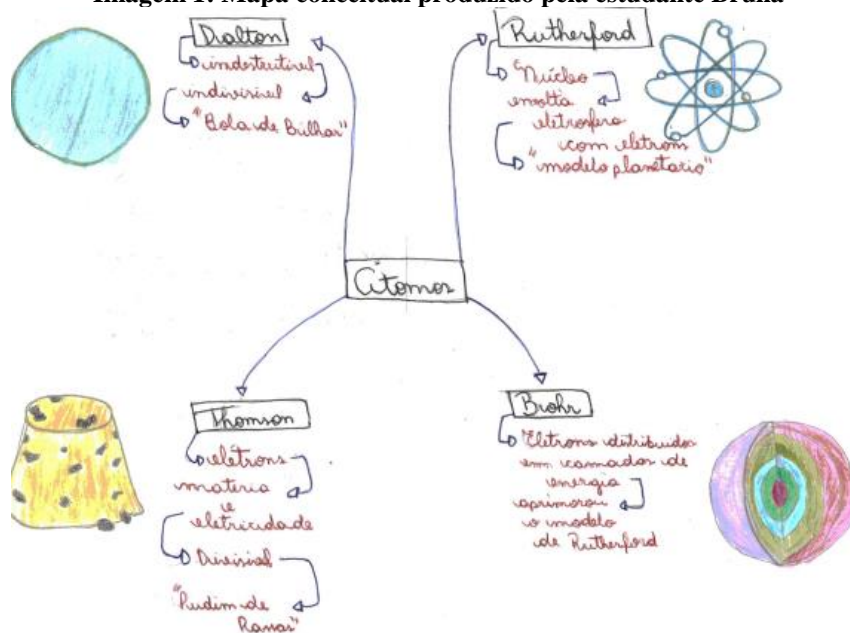 Imagem 1: Mapa conceitual produzido pela estudante Bruna
Dalton
indestrutível
indivisível
"Bola de Bilhar"
Rutherford
"Núcleo
envolta
eletrosfera
com elétrons
"modelo planetario"
Átomos
Thomson
elétrons
matéria
e
eletricidade
Divisível
"Pudim de
Passas"
Brohr
Elétrons distribuidos
em camadas de
energia
aprimorou
o modelo
de Rutherford